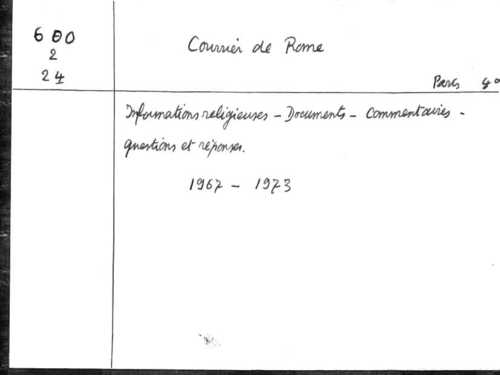 600
2
24
Courrier de Rome
Paris 4°
Informations religieuses - Documents - Commentaires -
questions et réponses.
1967 - 1973